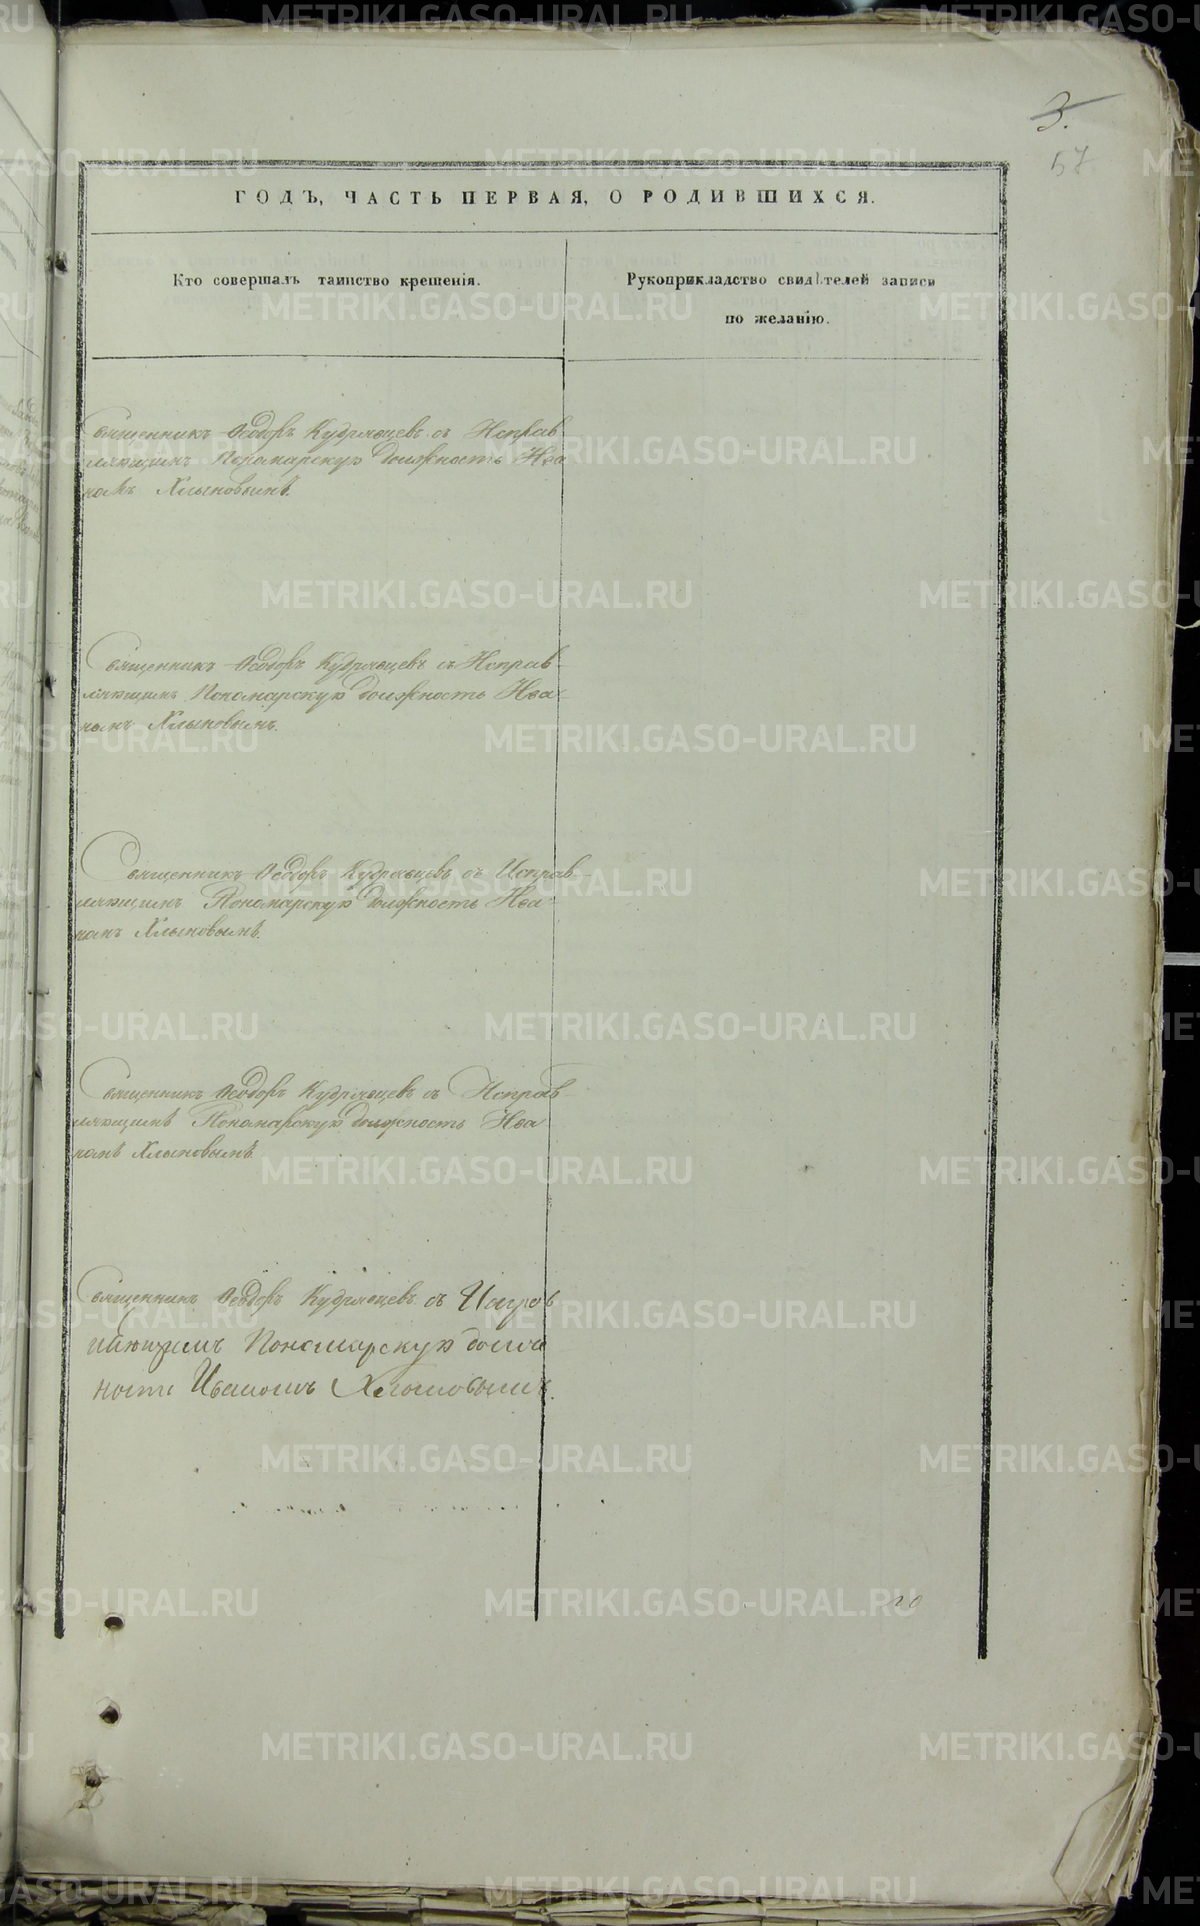 3.
57
ГОДЪ, ЧАСТЬ ПЕРВАЯ, О РОДИВШИХСЯ.
Кто совершалъ таинство крещенія.
Рукоприкладство свидѣтелей записи
по желанію.
Священникъ Ѳеодоръ Кудрявцевъ съ Исправ
ляющимъ Пономарскую должность Ива
номъ Хлыновымъ.
Священникъ Ѳеодоръ Кудрявцевъ съ Исправ-
ляющимъ Пономарскую должность Ива-
номъ Хлыновымъ.
Священникъ Ѳеодоръ Кудрявцевъ съ Исправ-
ляющимъ Пономарскую должность Ива-
номъ Хлыновымъ.
Священникъ Ѳеодоръ Кудрявцевъ съ Исправ
ляющимъ Пономарскую должность Ива
номъ Хлыновымъ
Священникъ Ѳеодоръ Кудрявцевъ съ Исправ
ляющимъ Пономарскую долж
ность Иваномъ Хлыновымъ.
METRIKI.GASO-URAL.RU